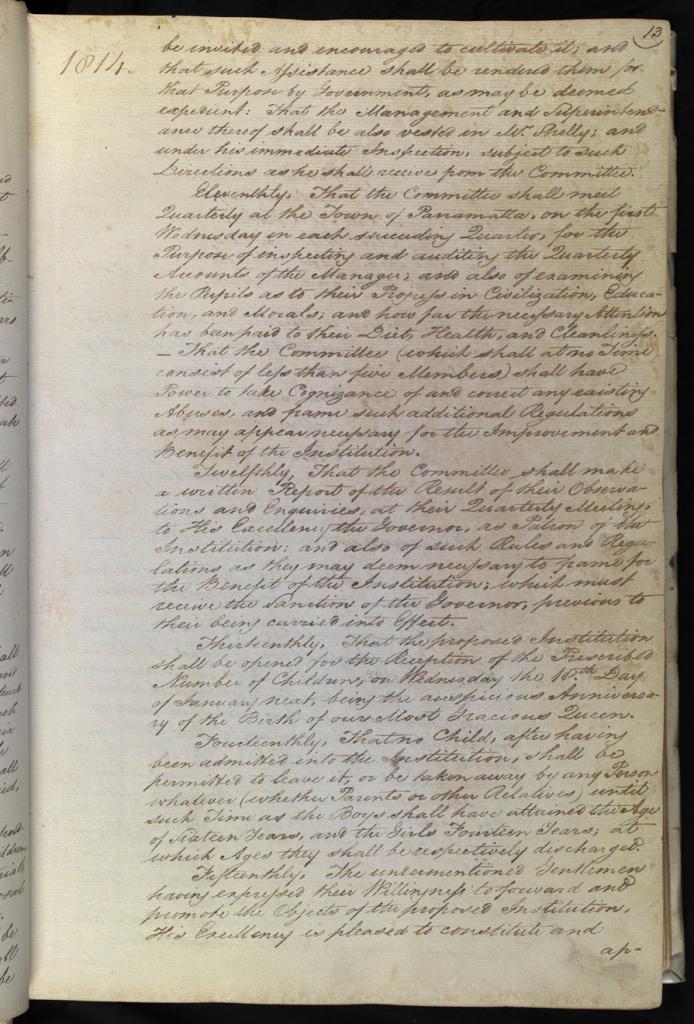 13
1814.
be invited and encouraged to cultivate it; and
that such Assistance shall be rendered them for
that Purpose by Government, as may be deemed
expedient: That the Management and Superintend-
ance thereof shall be also vested in Mr. Shelly; and
under his immediate Inspection, subject to such
Directions as he shall receive from the Committee.
Eleventhly, That the Committee shall meet
Quarterly at the Town of Parramatta, on the first
Wednesday in each succeeding Quarter, for the
Purpose of inspecting and auditing the Quarterly
Accounts of the Manager; and also of examining
the Pupils as to their Progress in Civilization, Educa-
tion, and Morals; and how far the necessary Attention
has been paid to their Diet, Health, and Cleanliness.
— That the Committee (which shall at no Time
consist of less than five Members) shall have
Power to take Cognizance of and correct any existing
Abuses, and frame such additional Regulations
as may appear necessary for the Improvement and
Benefit of the Institution.
Twelfthly, That the Committee shall make
a written Report of the Result of their Observa-
tions and Enquiries, at their Quarterly Meeting,
to His Excellency the Governor, as Patron of the
Institution; and also of such Rules and Regu-
lations as they may deem necessary to frame for
the Benefit of the Institution; which must
receive the Sanction of the Governor, previous to
their being carried into Effect.
Thirteenthly, That the proposed Institution
shall be opened for the Reception of the Prescribed
Number of Children, on Wednesday the 18th. Day
of January next, being the auspicious Anniversa-
ry of the Birth of our Most Gracious Queen.
Fourteenthly, That no Child, after having
been admitted into the Institution, shall be
permitted to leave it, or be taken away by any Person
whatever (whether Parents or other Relatives) until
such Time as the Boys shall have attained the Age
of Sixteen Years, and the Girls Fourteen Years; at
which Ages they shall be respectively discharged.
Fifteenthly, The undermentioned Gentlemen
having expressed their Willingness to forward and
promote the Objects of the proposed Institution,
His Excellency is pleased to constitute and
ap-